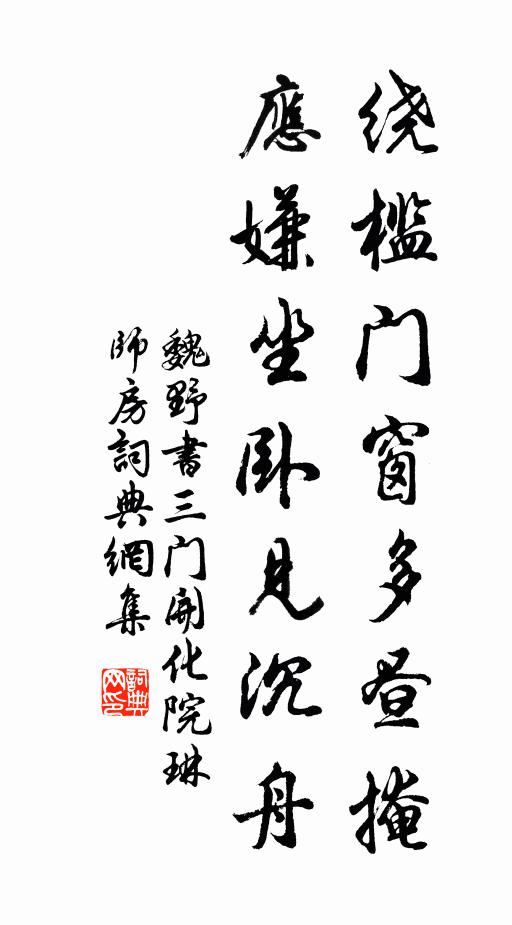 绕槛门窗多昼掩
應嫌坐卧見沉舟
魏野書三门開化院琳
師房詞典網集
詞典
网印